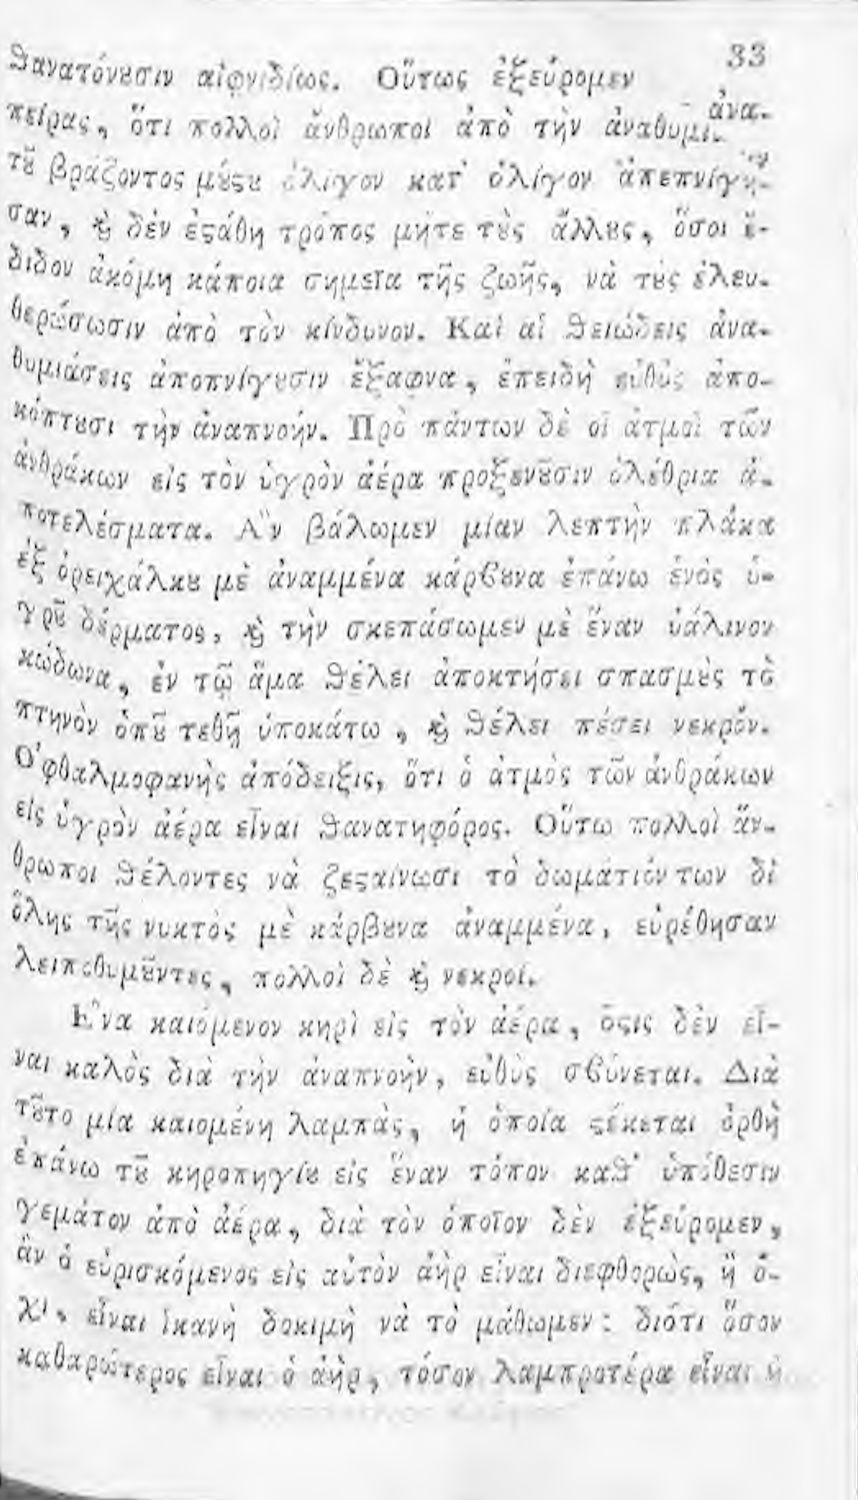 33
ϑανατόνȣσιν αἰφνιδίως. Οὕτως ἐξεύρομεν
πείρας, ὅτι πολλοὶ ἄνθρωποι ἀπὸ τὴν ἀναθυμί-
τȣ͂ βράζοντος μύϛȣ ὀλίγον κατ᾿ ὀλίγον ἀπεπνίγη-
σαν, ϗ δὲν ἐϛάθη τρόπος μήτε τȣ̀ς ἄλλȣς, ὅσοι ἔ-
διδον ἀκόμη κάποια σημεῖα τῆς ζωῆς, νὰ τȣ̀ς ἐλευ-
θερώσωσιν ἀπὸ τὸν κίνδυνον. Καὶ αἱ ϑειώδεις ἀνα-
θυμιάσεις ἀποπνίγȣσιν ἔξαφνα, ἐπειδὴ εὐθὺς ἀπο-
κόπτȣσι τὴν ἀναπνοήν. Πρὸ πάντων δὲ οἱ ἀτμοὶ τῶν
ἀνθράκων εἰς τὸν ὑγρὸν ἀέρα προξενȣ͂σιν ὀλέθρια ἀ-
ποτελέσματα. Α῎ν βάλωμεν μίαν λεπτὴν πλάκα
ἐξ ὀρειχάλκȣ μὲ ἀναμμένα κάρβȣνα ἐπάνω ἑνὸς ὑ-
γρȣ͂ δέρματος, ϗ τὴν σκεπάσωμεν μὲ ἕναν ὑάλινον
κώδωνα, ἐν τῷ ἅμα ϑέλει ἀποκτήσει σπασμȣ̀ς τὸ
πτηνὸν ὁπȣ͂ τεθῇ ὑποκάτω, ϗ ϑέλει πέσει νεκρόν.
Ο᾿φθαλμοφανὴς ἀπόδειξις, ὅτι ὁ ἀτμὸς τῶν ἀνθράκων
εἰς ὑγρὸν ἀέρα εἶναι ϑανατηφόρος. Οὕτω πολλοὶ ἄν-
θρωποι ϑέλοντες νὰ ζεϛαίνωσι τὸ δωμάτιόν των δἰ
ὅλης τῆς νυκτὸς μὲ κάρβȣνα ἀναμμένα, εὑρέθησαν
λειποθυμȣ͂ντες, πολλοὶ δὲ ϗ νεκροί.
Ε῞να καιόμενον κηρὶ εἰς τὸν ἀέρα, ὅϛις δὲν εἶ-
ναι καλὸς διὰ τὴν ἀναπνοὴν, εὐθὺς σβύνεται. Διὰ
τȣ͂το μία καιομένη λαμπὰς, ἡ ὁποία ϛέκεται ὀρθὴ
ἐπάνω τȣ͂ κηροπηγίȣ εἰς ἕναν τόπον καϑ᾿ ὑπόθεσιν
γεμάτον ἀπὸ ἀέρα, διὰ τὸν ὁποῖον δὲν ἐξεύρομεν,
ἂν ὁ εὑρισκόμενος εἰς αὐτὸν ἀὴρ εἶναι διεφθορὼς, ἢ ὄ-
χι, εἶναι ἱκανὴ δοκιμὴ νὰ τὸ μάθωμεν: διότι ὅσον
καθαρώτερος εἶναι ὁ ἀὴρ, τόσον λαμπροτέρα εἶναι ἡ